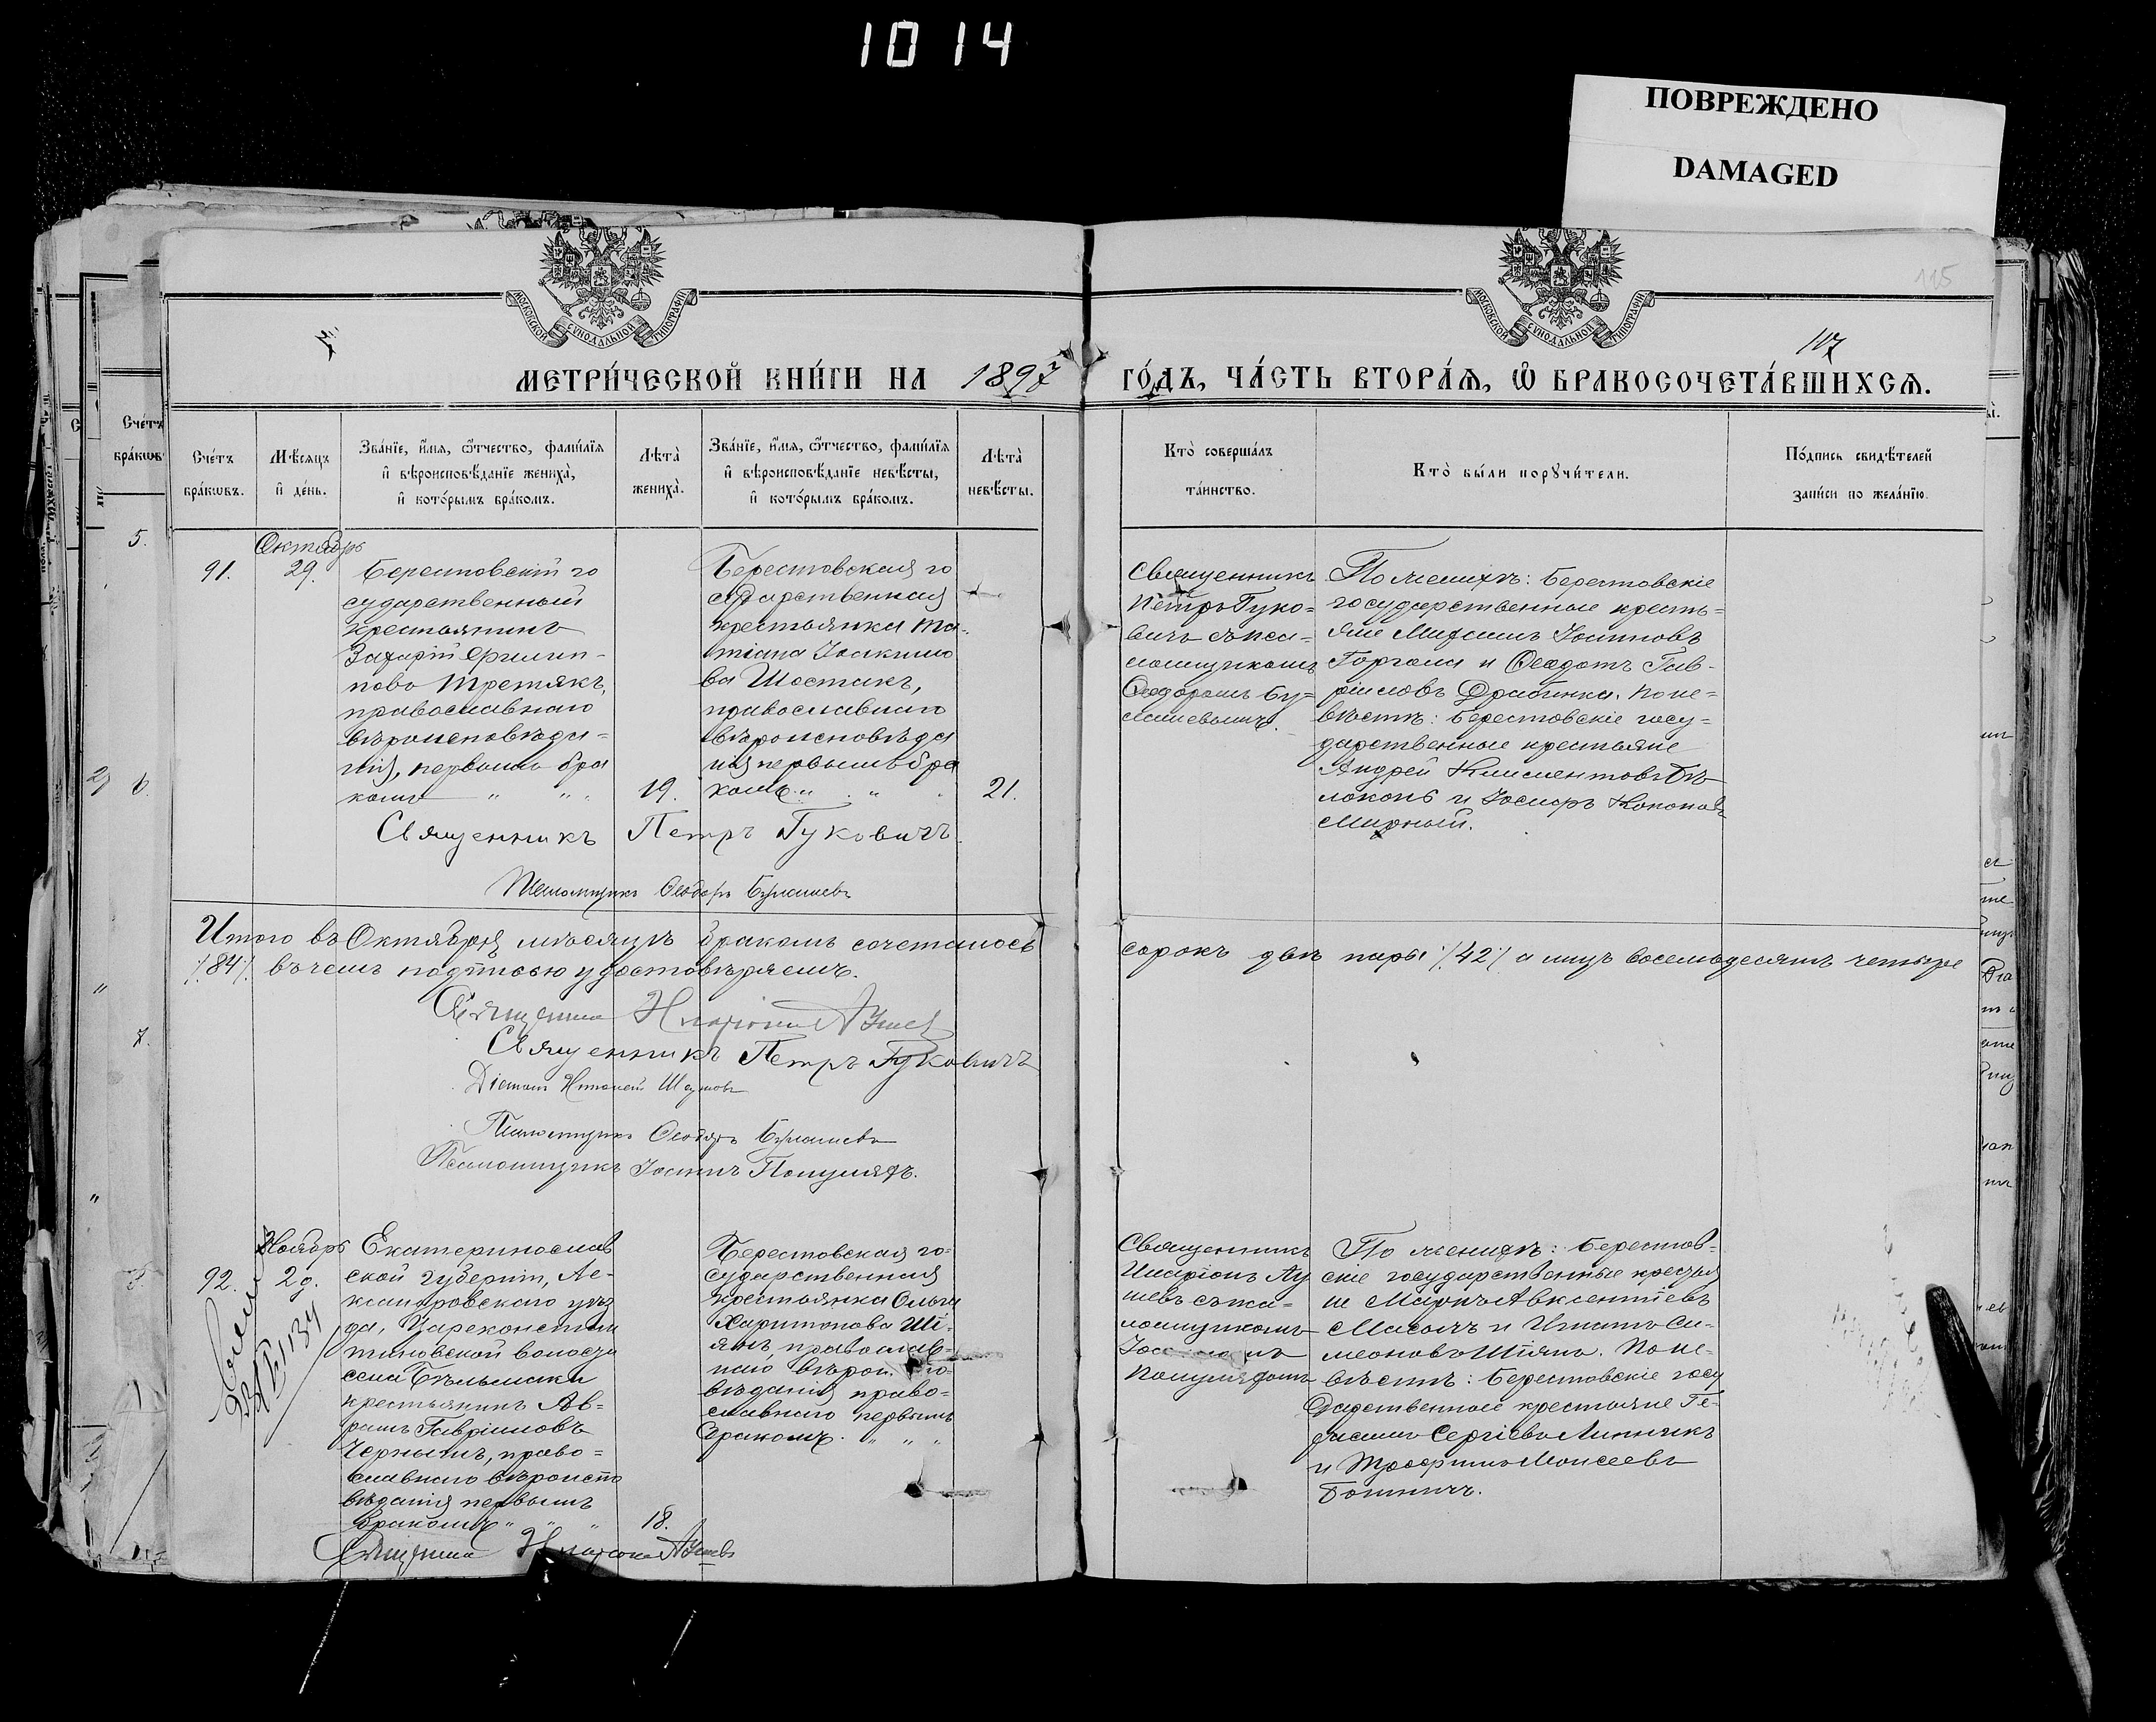 1014
ПОВРЕЖДЕНО
DAMAGED
МОСКОВСКОЙ СѴНОДАЛЬНОЙ ТИПОГРАФІИ
МОСКОВСКОЙ СѴНОДАЛЬНОЙ ТИПОГРАФІИ
115
117
МЕТРИ́ЧЕСКОЙ КНИ́ГИ НА 1897 ГО́ДЪ, ЧА́СТЬ ВТОРА́Ѧ, Ѽ БРАКОСОЧЕТА́ВШИХСѦ.
Сче́тъ
бра́кѡвъ.
Мѣ́сѧцъ
и҆ де́нь.
Зва́нїе, и҆́мѧ, ѻ҆́тчество, фами́лїѧ
и҆ вѣроисповѣ́данїе жениха̀,
и҆ кото́рымъ бра́комъ.
Лѣта̀
жениха̀.
Зва́нїе, и҆́мѧ, ѻ҆́тчество, фами́лїѧ
и҆ вѣроисповѣ́данїе невѣ́сты,
и҆ кото́рымъ бра́комъ.
Лѣта̀
невѣ́сты.
Кто̀ соверша́лъ
та́инство.
Кто̀ бы́ли порꙋчи́тели.
По́дпись свидѣ́телей
за́писи по жела́нїю.
Октябрь
91.
29.
Берестовскій го
сударственный
крестьянинъ
Захарій Филип-
повъ Третякъ,
православнаго
вѣроисповѣда-
нія, первымъ бра
комъ " " "
19.
Берестовская го
сударственная
крестьянка Та-
тіана Іоакимо
ва Шостакъ,
православнаго
вѣроисповѣда
нія первымъ бра
комъ " "
21.
Священникъ
Петръ Гуко-
вичъ съ пса-
ломщикомъ
Ѳеодоромъ Бу-
По женихѣ: Берестовскіе
государственные кресть-
яне Михаилъ Іоанновъ
Горгола и Ѳеодотъ Гав-
ріиловъ Драбинка. По не-
вѣстѣ: Берестовскіе госу-
дарственные крестьяне
Андрей Климентовъ Бѣ
локонь и Іосифъ Кононовъ
Мирный.
Священникъ Петръ Гуковичъ.
Псаломщикъ Ѳеодоръ
Итого въ Октябрѣ мѣсяцѣ бракомъ сочеталось сорокъ двѣ пары /42/ а лицъ восемьдесятъ четыре
/84/. въ чемъ подписью удостовѣряемъ.
Священникъ Иларіонъ
Священникъ Петръ Гуковичъ
Діаконъ Николай
Псаломщикъ Ѳеодоръ
Псаломщикъ Іоаннъ
Ноябрь
92.
2
1134
Екатеринослав
ской губерніи, Але-
ксандровскаго уѣз
да, Цареконстан
тиновской волости
села Бѣльманки
крестьянинъ Ав-
рамъ Гавріиловъ
право-
славнаго вѣроиспо
вѣданія первымъ
бракомъ " " "
18.
Берестовская го-
сударственная
крестьянка Ольга
Харитонова Ші-
янъ, православ-
наго
вѣданія право-
славнаго первымъ
бракомъ. " " "
Священникъ
Иларіонъ
съ пса-
ломщикомъ
По женихѣ: Берестов-
скіе государственные крестья
не Маркъ Авксентіевъ
и Игнатъ Си-
меоновъ Шіянъ. По не-
вѣстѣ: Берестовскіе госу
дарственные крестьяне Ге-
Сергіевъ Линникъ
и Трофимъ Моисеевъ
Священникъ Иларіонъ